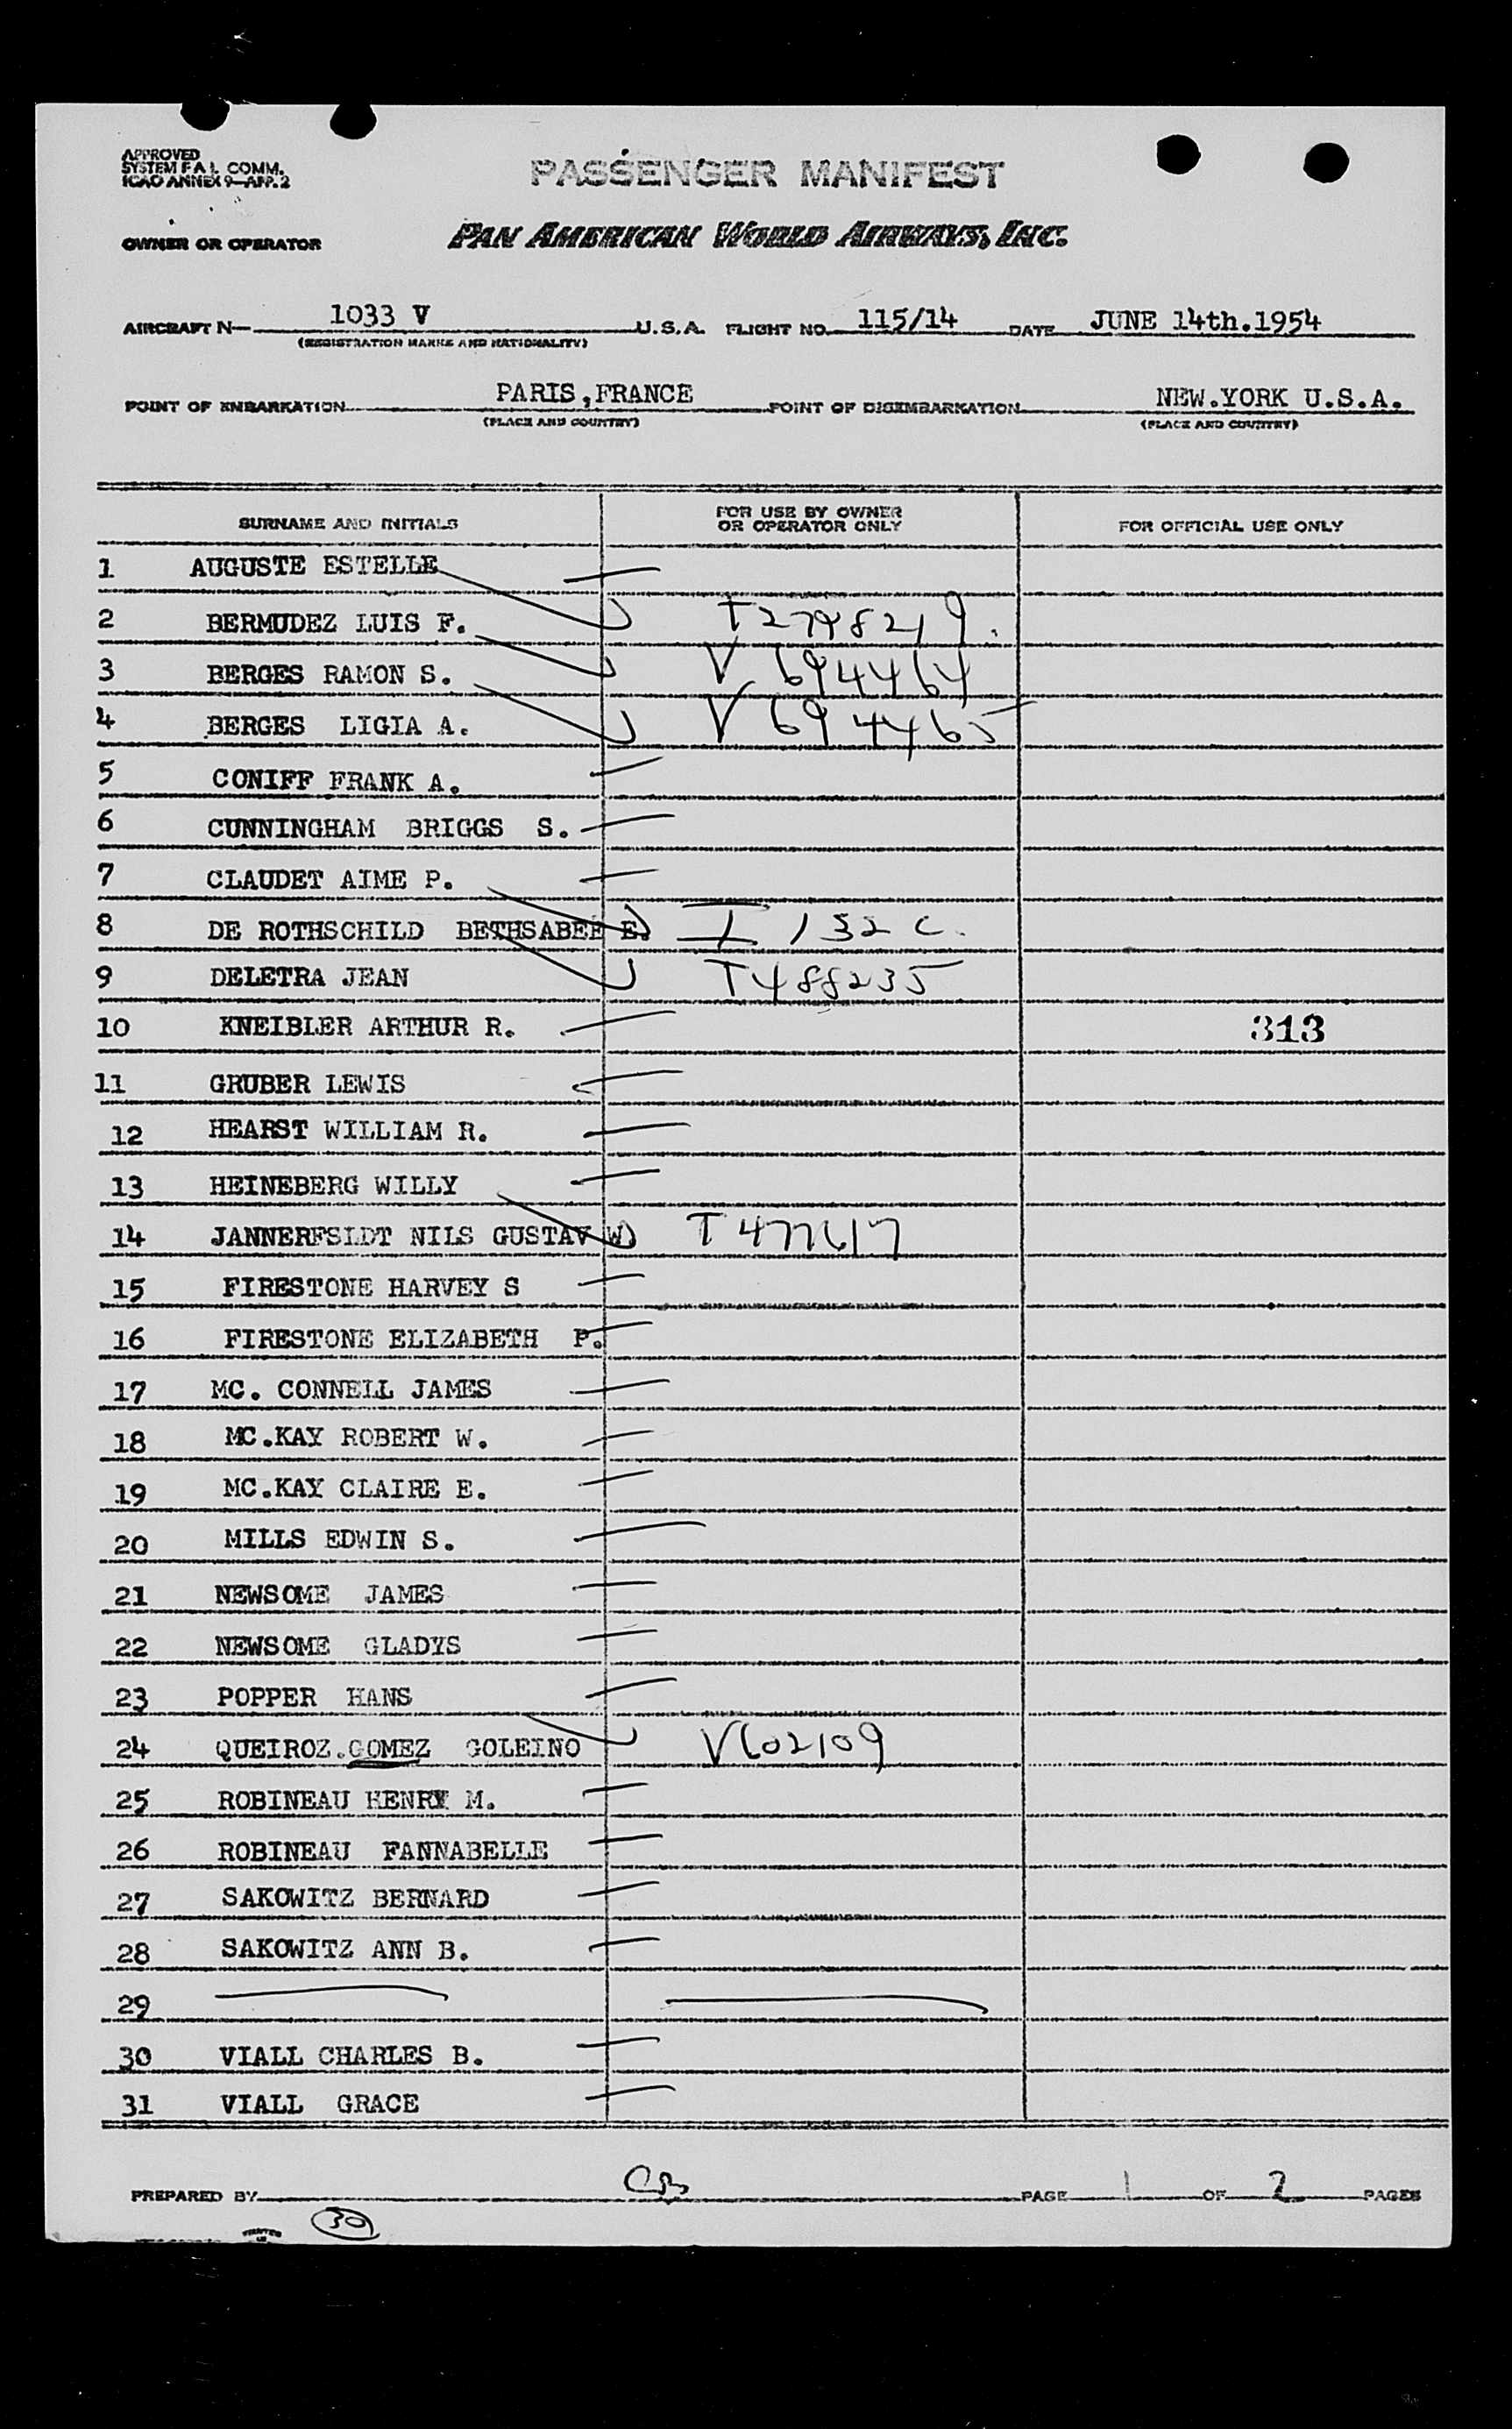 APPROVED
SYSTEM F.A.L. COMM.
ICAO ANNEX 9-APP.2
PASSENGER MANIFEST
OWNER OR OPERATOR
PAN AMERICAN WORLD AIRWAYS, INC.
AIRCRAFT N- 1033 V U.S.A. FLIGHT NO. 115/14 DATE JUNE 14th.1954
(REGISTRATION MARKS AND NATIONALITY)
POINT OF EMBARKATION PARIS,FRANCE POINT OF DISEMBARKATION NEW.YORK U.S.A.
(PLACE AND COUNTRY) (PLACE AND COUNTRY)
SURNAME AND INITIALS FOR USE BY OWNER OR OPERATOR ONLY FOR OFFICIAL USE ONLY
1 AUGUSTE ESTELLE
2 BERMUDEZ LUIS F. T2798219.
3 BERGES RAMON S. V 694464
4 BERGES LIGIA A. V 694465
5 CONIFF FRANK A.
6 CUNNINGHAM BRIGGS S.
7 CLAUDET AIME P.
8 DE ROTHSCHILD BETHSABEE E. I 132 C.
9 DELETRA JEAN T488235
10 KNEIBLER ARTHUR R. 313
11 GRUBER LEWIS
12 HEARST WILLIAM R.
13 HEINEBERG WILLY
14 JANNERFSLDT NILS GUSTAV W T 477617
15 FIRESTONE HARVEY S
16 FIRESTONE ELIZABETH P.
17 MC. CONNELL JAMES
18 MC.KAY ROBERT W.
19 MC.KAY CLAIRE E.
20 MILLS EDWIN S.
21 NEWSOME JAMES
22 NEWSOME GLADYS
23 POPPER HANS
24 QUEIROZ.GOMEZ GOLEINO V602109
25 ROBINEAU HENRY M.
26 ROBINEAU FANNABELLE
27 SAKOWITZ BERNARD
28 SAKOWITZ ANN B.
29
30 VIALL CHARLES B.
31 VIALL GRACE
PREPARED BY CB PAGE 1 OF 2 PAGES
30